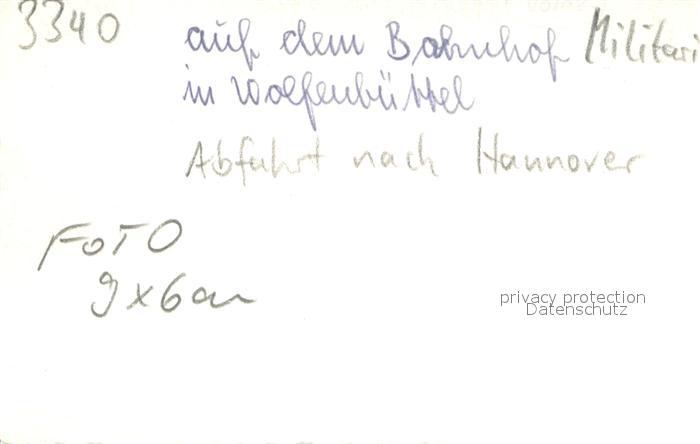 3340 auf dem Bahnhof Militari
in Wolfenbüttel
Abfahrt nach Hannover
FOTO
9x6cm
privacy protection
Datenschutz